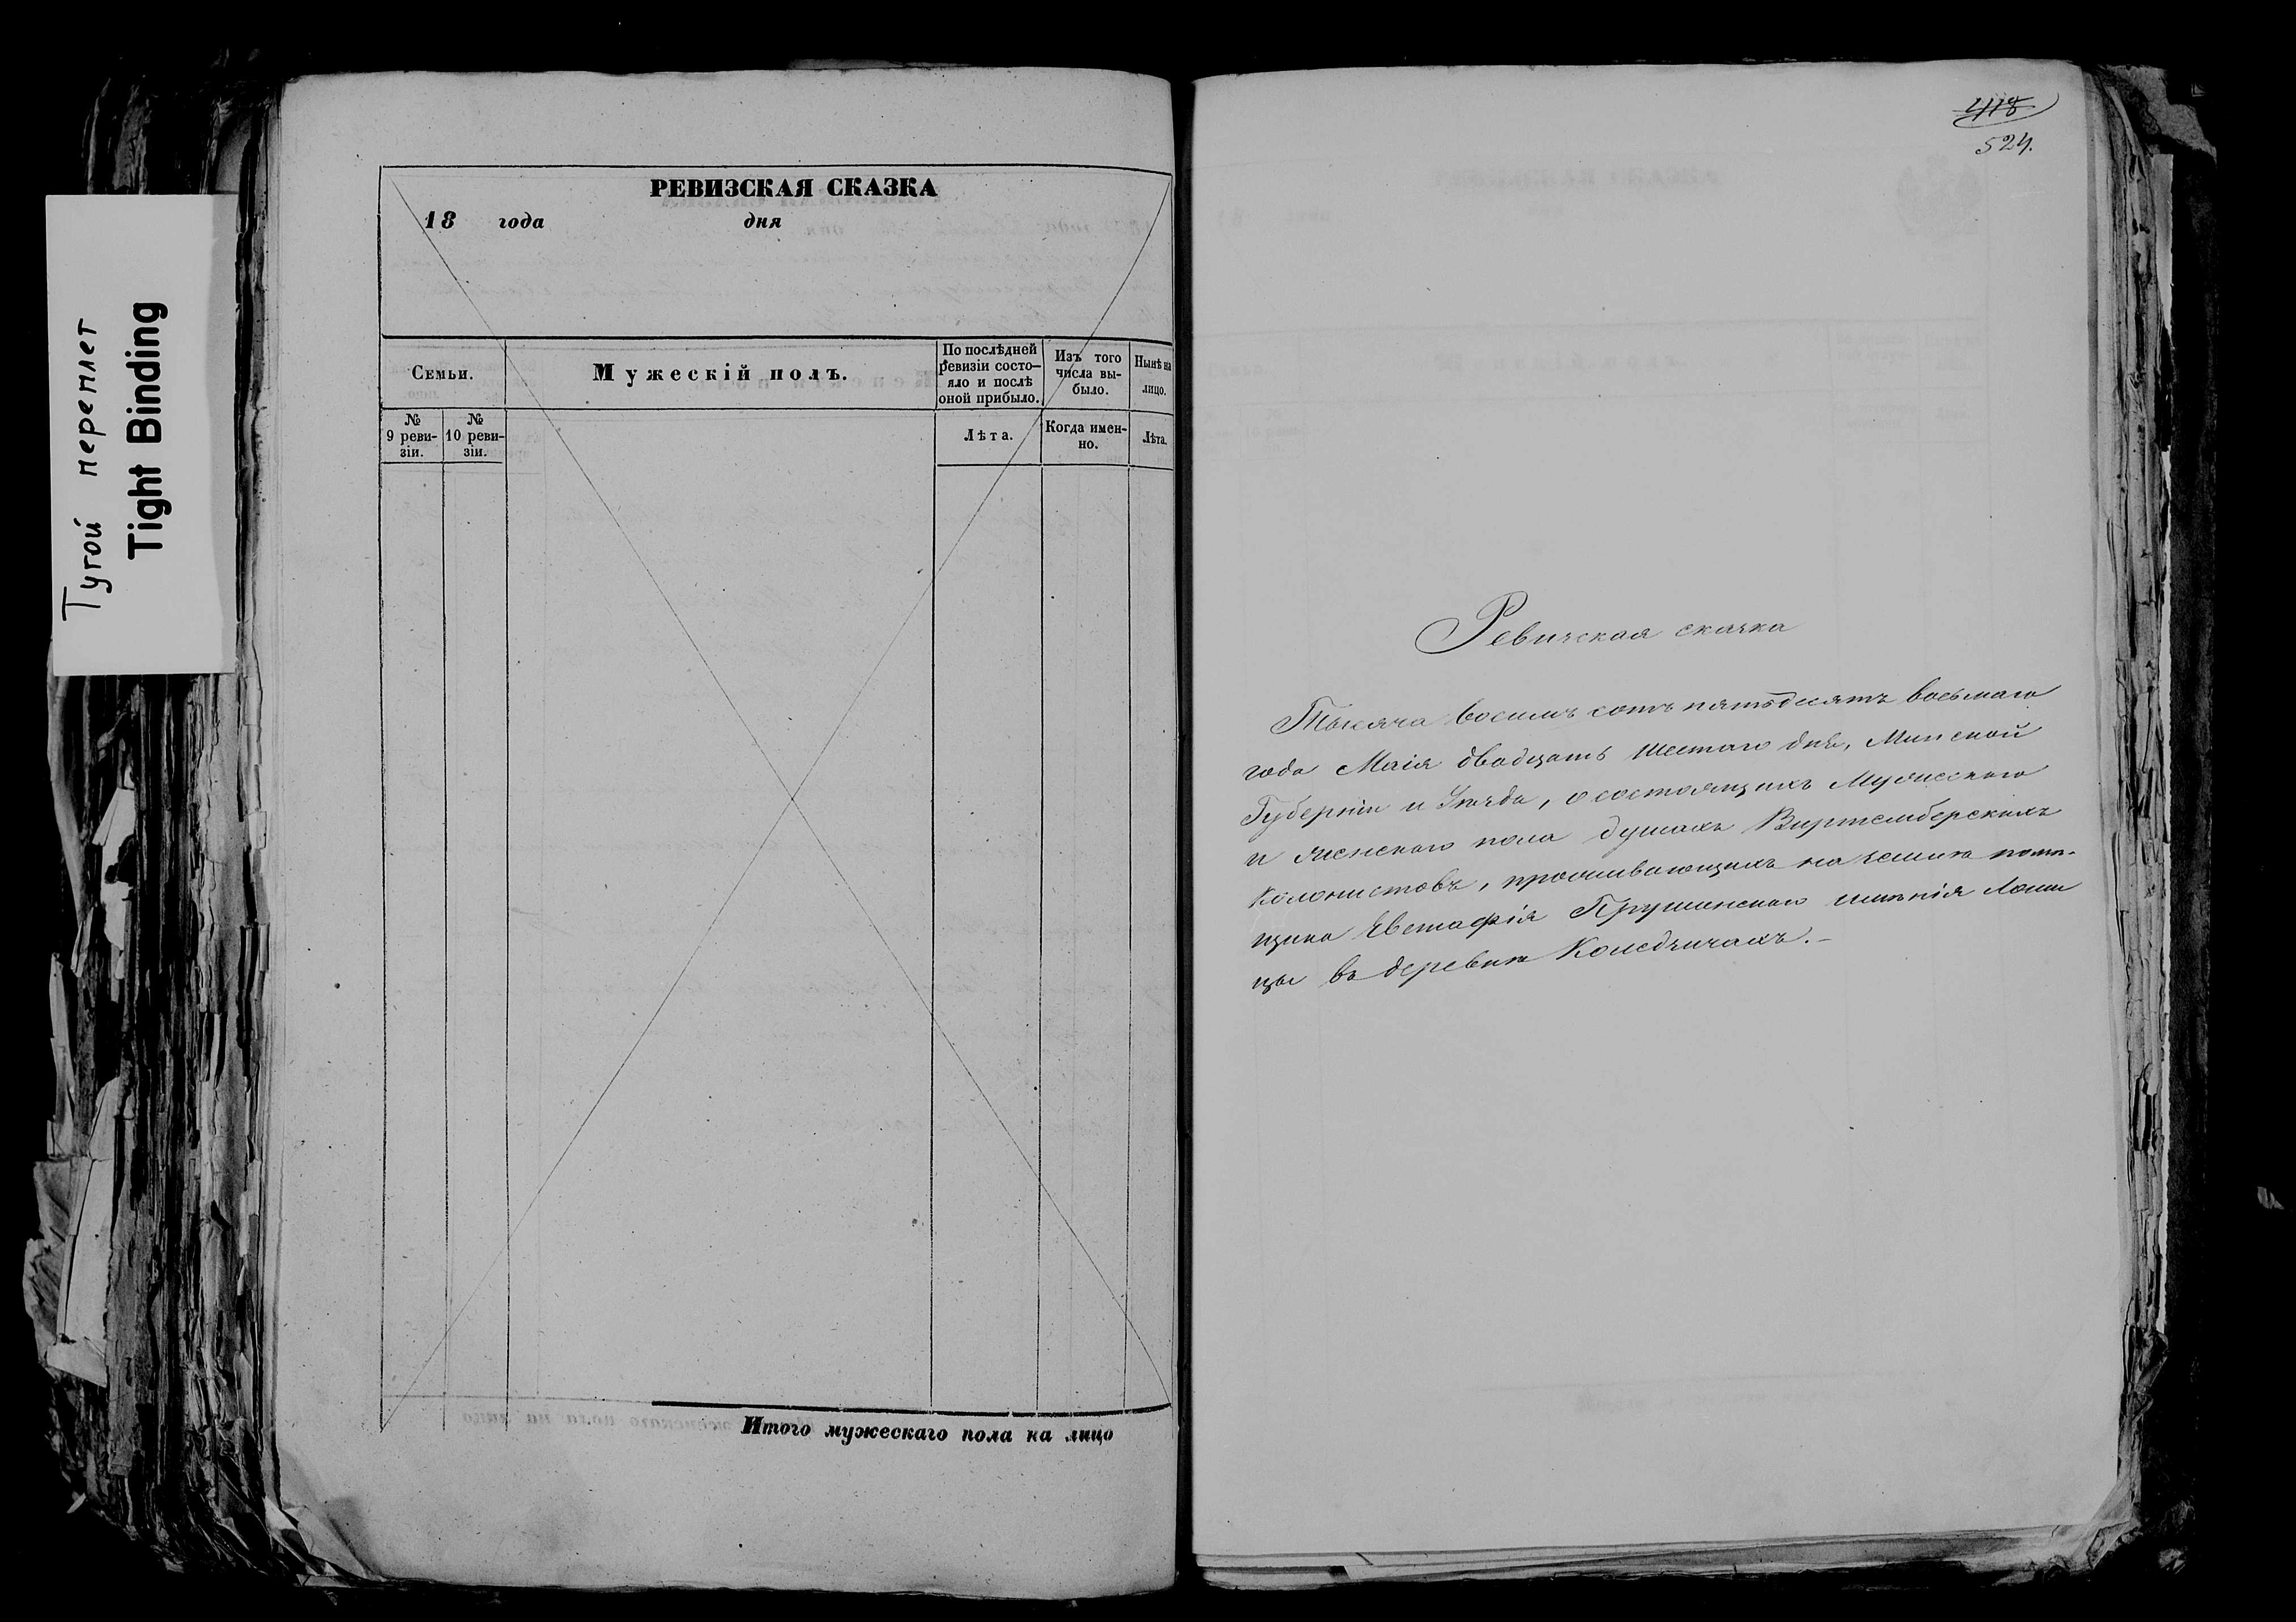 Тугой переплет
Tight Binding
РЕВИЗСКАЯ СКАЗКА
18 года дня
Семьи.
Мужескій полъ.
По послѣдней
ревизіи состо-
яло и послѣ
оной прибыло.
Изъ того
числа вы-
было.
Нынѣ на
лицо.
№
9 реви-
зіи.
№
10 реви-
зіи.
Лѣта.
Когда имен-
но.
Лѣта.
Итого мужескаго пола на лицо
418
524.
Ревизская сказка
Тысяча восемь сотъ пятьдесятъ восьмаго
года Маія двадцать шестаго дня, Минской
Губерніи и Уѣзда, о состоящихъ Мужескаго
и женскаго пола душахъ Виртембергскихъ
Колонистовъ, проживающихъ на землѣ помѣ-
щика Евстафія Прушинскаго имѣнія Лоши
цы въ деревнѣ Колядичахъ.-